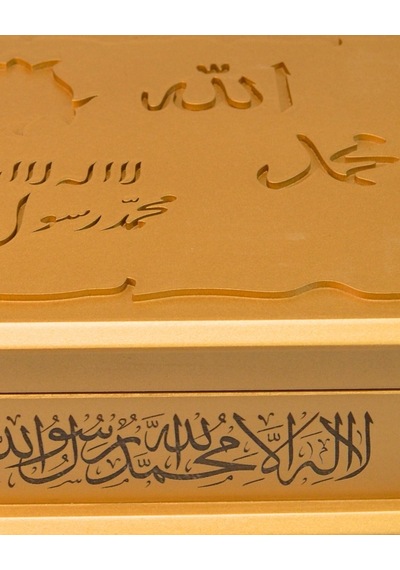 الله
محمد
لا اله الا
محمّد رسول
لا اله الّا الله محمّد رسول الله